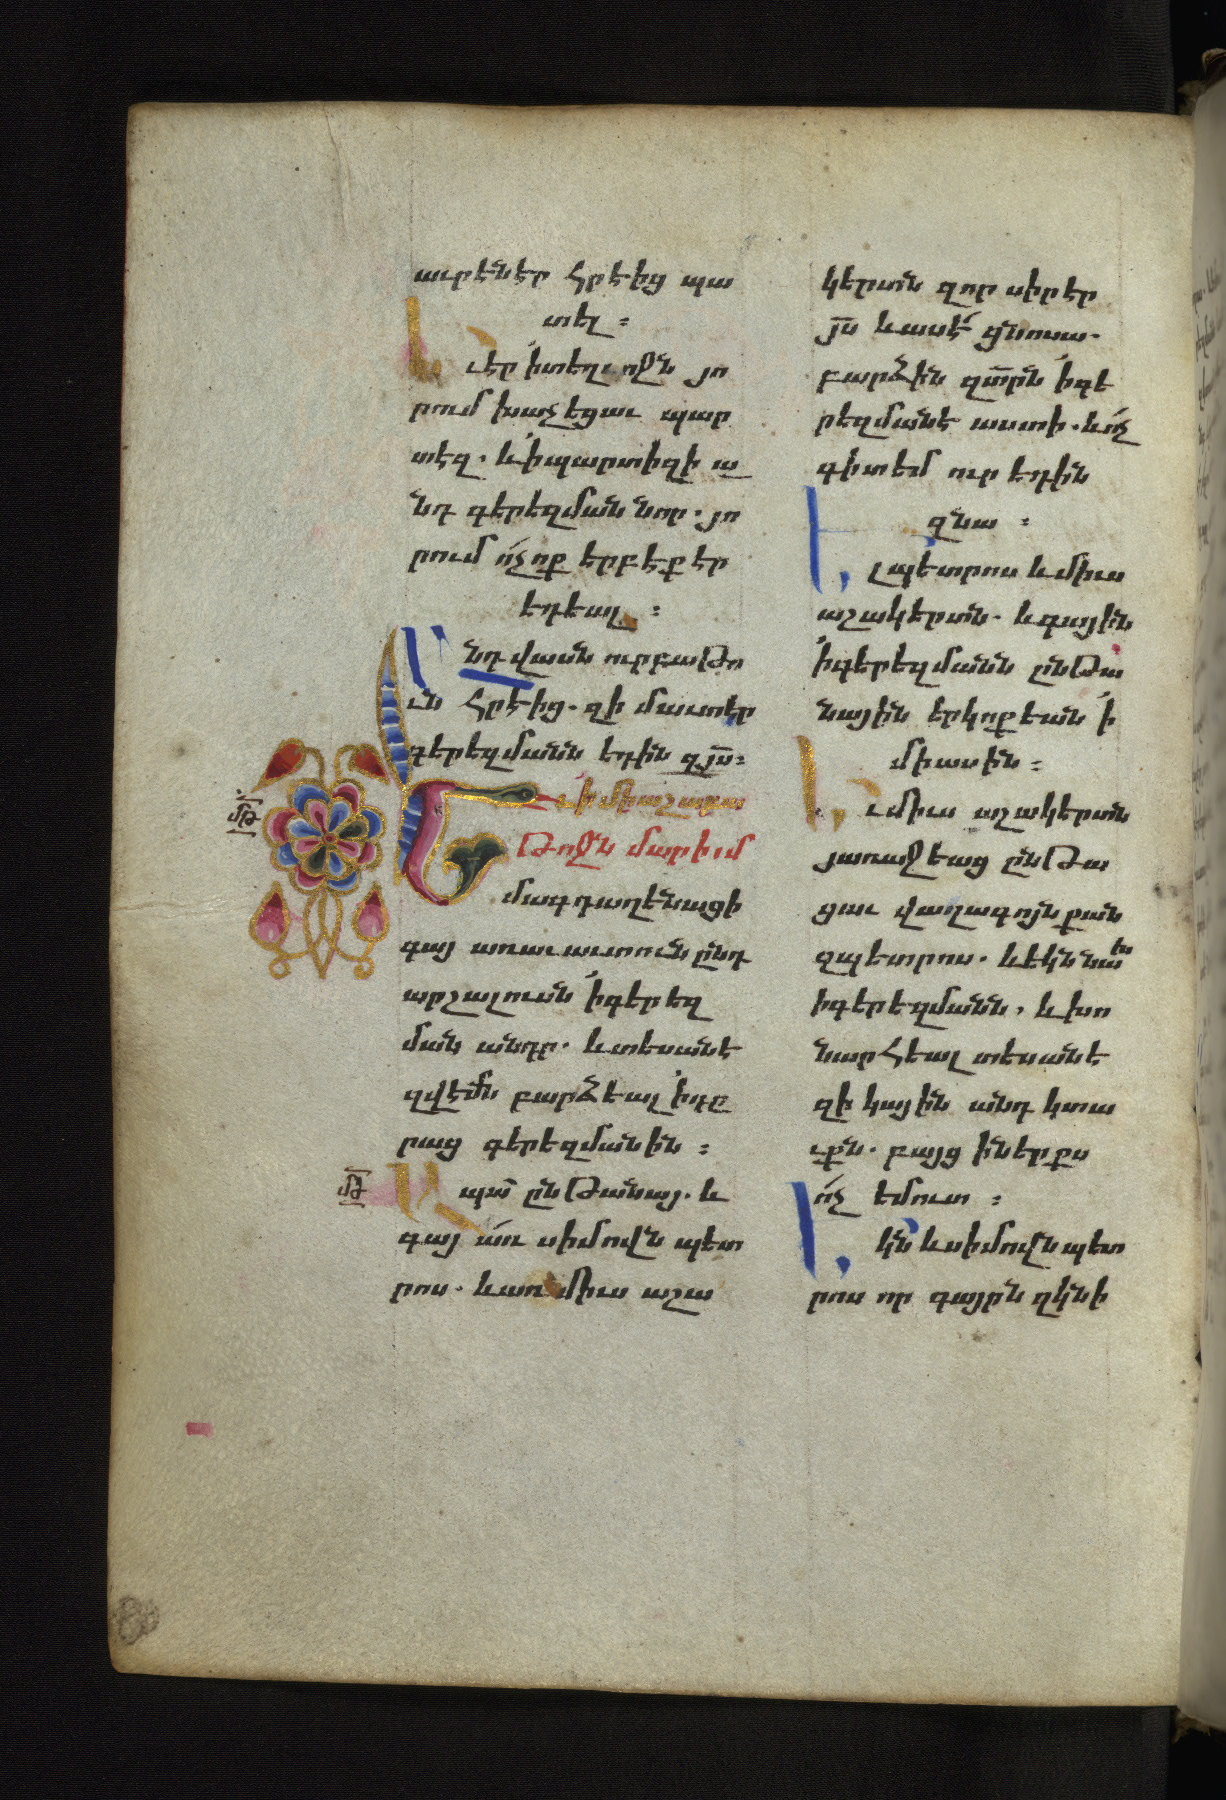 աւրէնէր հրէից պա
տել ։
Եւ էր ՚ի տեղւոջն յո
րում խաչեցաւ պար
տէզ . և ՚ի պարտիզի ա
նդ գերեզման նոր . յո
րում ո՛չ ոք երբէք էր
եդեալ ։
Անդ վասն ուրբաթո
ւն հրէից . զի մաւտ էր
գերեզմանն եդին զյս ։
Եւ ՚ի միաշաբա
մթ
թոջն մարիամ
մագդաղէնացի
գայ առաւաւտուն ընդ
արշալուսն ՚ի գերեզ
ման անդր . և տեսանէ
զվէմն բարձեալ ՚ի դը
րաց գերեզմանին ։
մթ
Ապա ընթանայ . և
գայ առ սիմովն պետ
րոս . և առ միւս աշա
կերտն զոր սիրէր
յս և ասէ ցնոսա .
բարձին զտրն ՚ի գե
րեզմանէ աստի . և ո՛չ
գիտեմ ուր եդին
զնա ։
Ել պետրոս և միւս
աշակերտն . և գային
՚ի գերեզմանն ընթա
նային երկոքեան ՚ի
միասին ։
Եւ միւս աշակերտն
յառաջեաց ընթա
ցաւ վաղագոյն քան
զպետրոս . և եկն նախ
ի գերեզմանն . և խո
նարհեալ տեսանէ
զի կային անդ կտա
ւքն . բայց ի ներքս
ո՛չ եմուտ ։
Եկն և սիմովն պետ
րոս որ գայրն զկնի